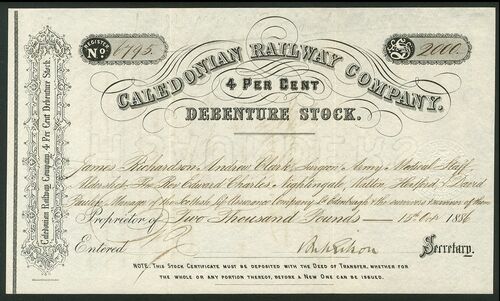 REGISTER
No 6795.
2000.
CALEDONIAN RAILWAY COMPANY.
4 PER CENT
DEBENTURE STOCK.
Caledonian Railway Company, 4 Per Cent Debenture Stock.
James Richardson Andrew Clark, Surgeon Army Medical Staff
Aldershot, The Rev Edward Charles Nightingale,
Manager of the Assurance Company Edinburgh & the survivors & survivor of them
Proprietor of Two Thousand Pounds — 15 Oct 1886
Entered
Secretary.
NOTE. THIS STOCK CERTIFICATE MUST BE DEPOSITED WITH THE DEED OF TRANSFER, WHETHER FOR
THE WHOLE OR ANY PORTION THEREOF, BEFORE A NEW ONE CAN BE ISSUED.